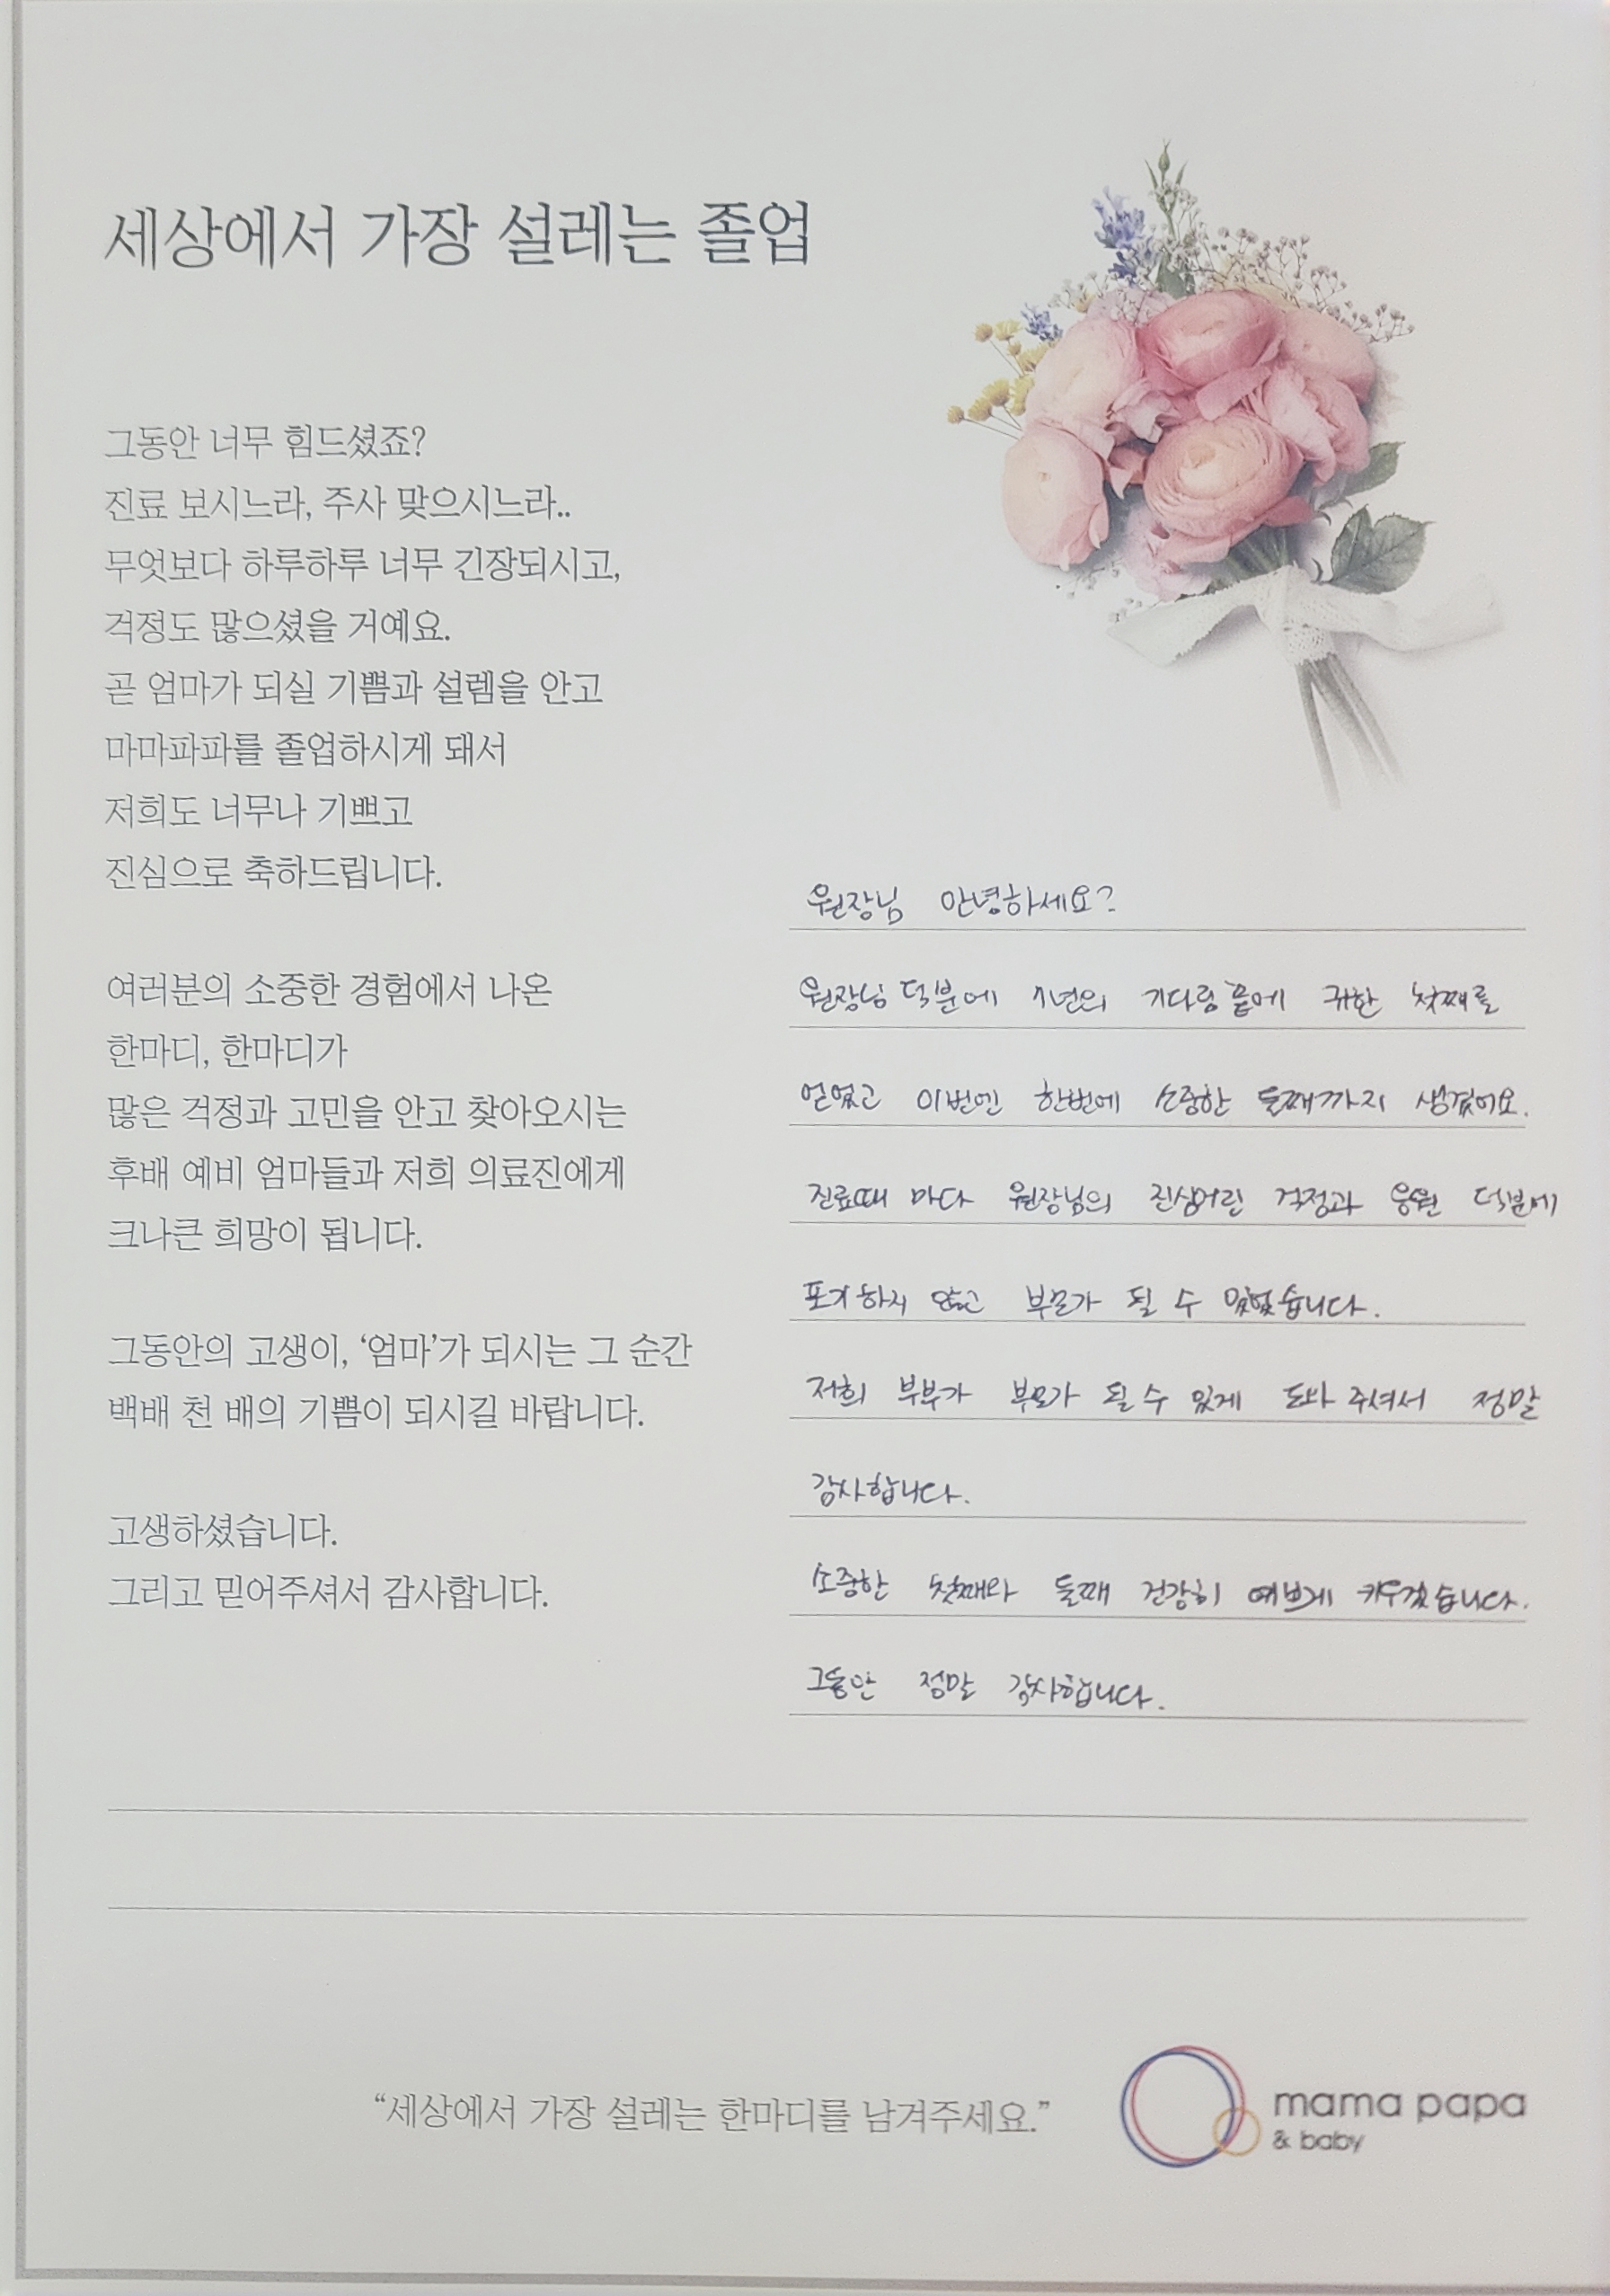 세상에서 가장 설레는 졸업
그동안 너무 힘드셨죠?
진료 보시느라, 주사 맞으시느라..
무엇보다 하루하루 너무 긴장되시고,
걱정도 많으셨을 거예요.
곧 엄마가 되실 기쁨과 설렘을 안고
마마파파를 졸업하시게 돼서
저희도 너무나 기쁘고
진심으로 축하드립니다.
여러분의 소중한 경험에서 나온
한마디, 한마디가
많은 걱정과 고민을 안고 찾아오시는
후배 예비 엄마들과 저희 의료진에게
크나큰 희망이 됩니다.
그동안의 고생이, ‘엄마’가 되시는 그 순간
백배 천 배의 기쁨이 되시길 바랍니다.
고생하셨습니다.
그리고 믿어주셔서 감사합니다.
원장님 안녕하세요?
원장님 덕분에 7년의 기다림 끝에 귀한 첫째를
얻었고 이번엔 한번에 소중한 둘째까지 생겼어요.
진료때 마다 원장님의 진심어린 걱정과 응원 덕분에
포기하지 않고 부모가 될 수 있었습니다.
저희 부부가 부모가 될 수 있게 도와 주셔서 정말
감사합니다.
소중한 첫째와 둘째 건강히 예쁘게 키우겠습니다.
그동안 정말 감사합니다.
“세상에서 가장 설레는 한마디를 남겨주세요.”
mama papa
& baby